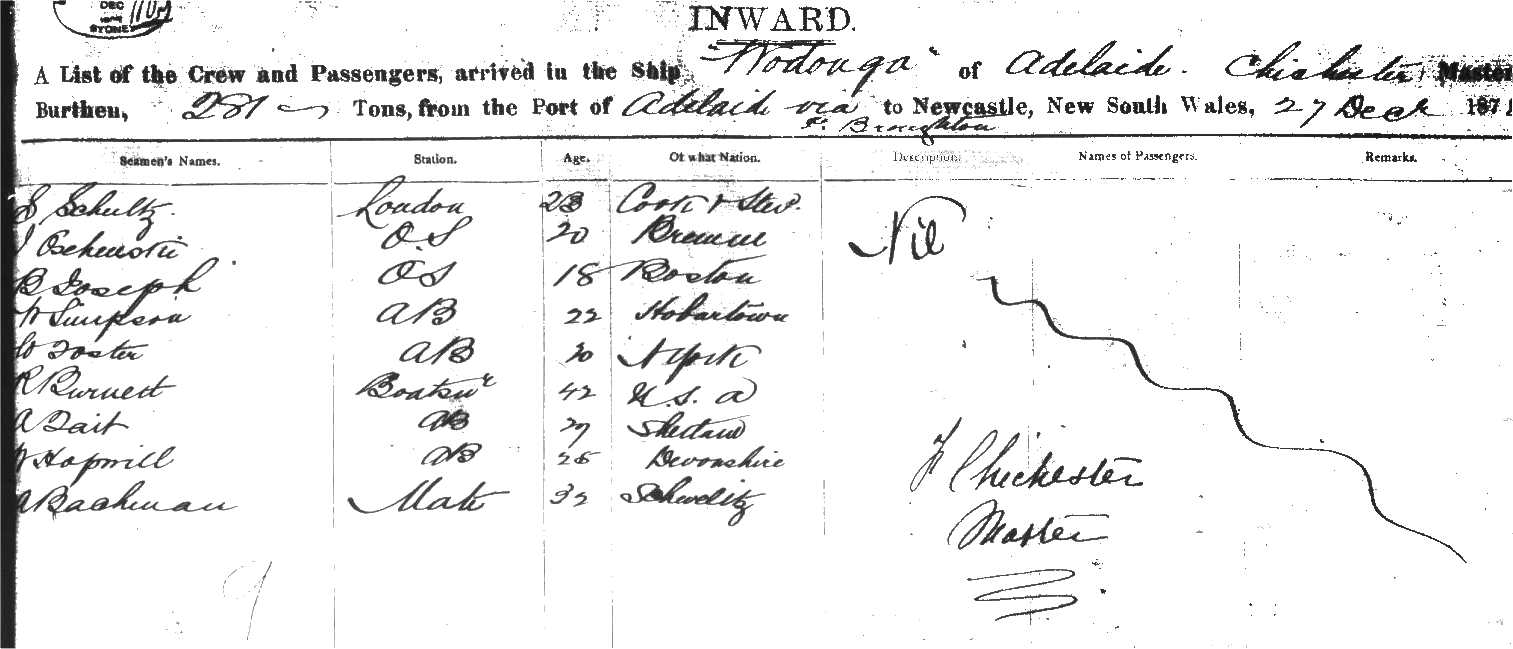 DEC
SYDNEY
INWARD.
A List of the Crew and Passengers, arrived in the Ship "Wodonga" of Adelaide. Chichester Master
Burthen, 281 Tons, from the Port of Adelaide via to Newcastle, New South Wales, 27 Decr 187
Pt. Broughton
Seamen's Names. Station. Age. Of what Nation. Description. Names of Passengers. Remarks.
S Schultz. London 23 Cook & Stew. Nil
J OS 20 Breme
B Joseph OS 18 Boston
W Simpson AB 22 Hobartown
W Foster AB 20 N York
R Burnett Boatsn 42 U.S. A
A Tait AB 27 Shetland
W Hopwill AB 25 Devonshire F Chichester
A Bachman Mate 32 Schwelitz
Master
9